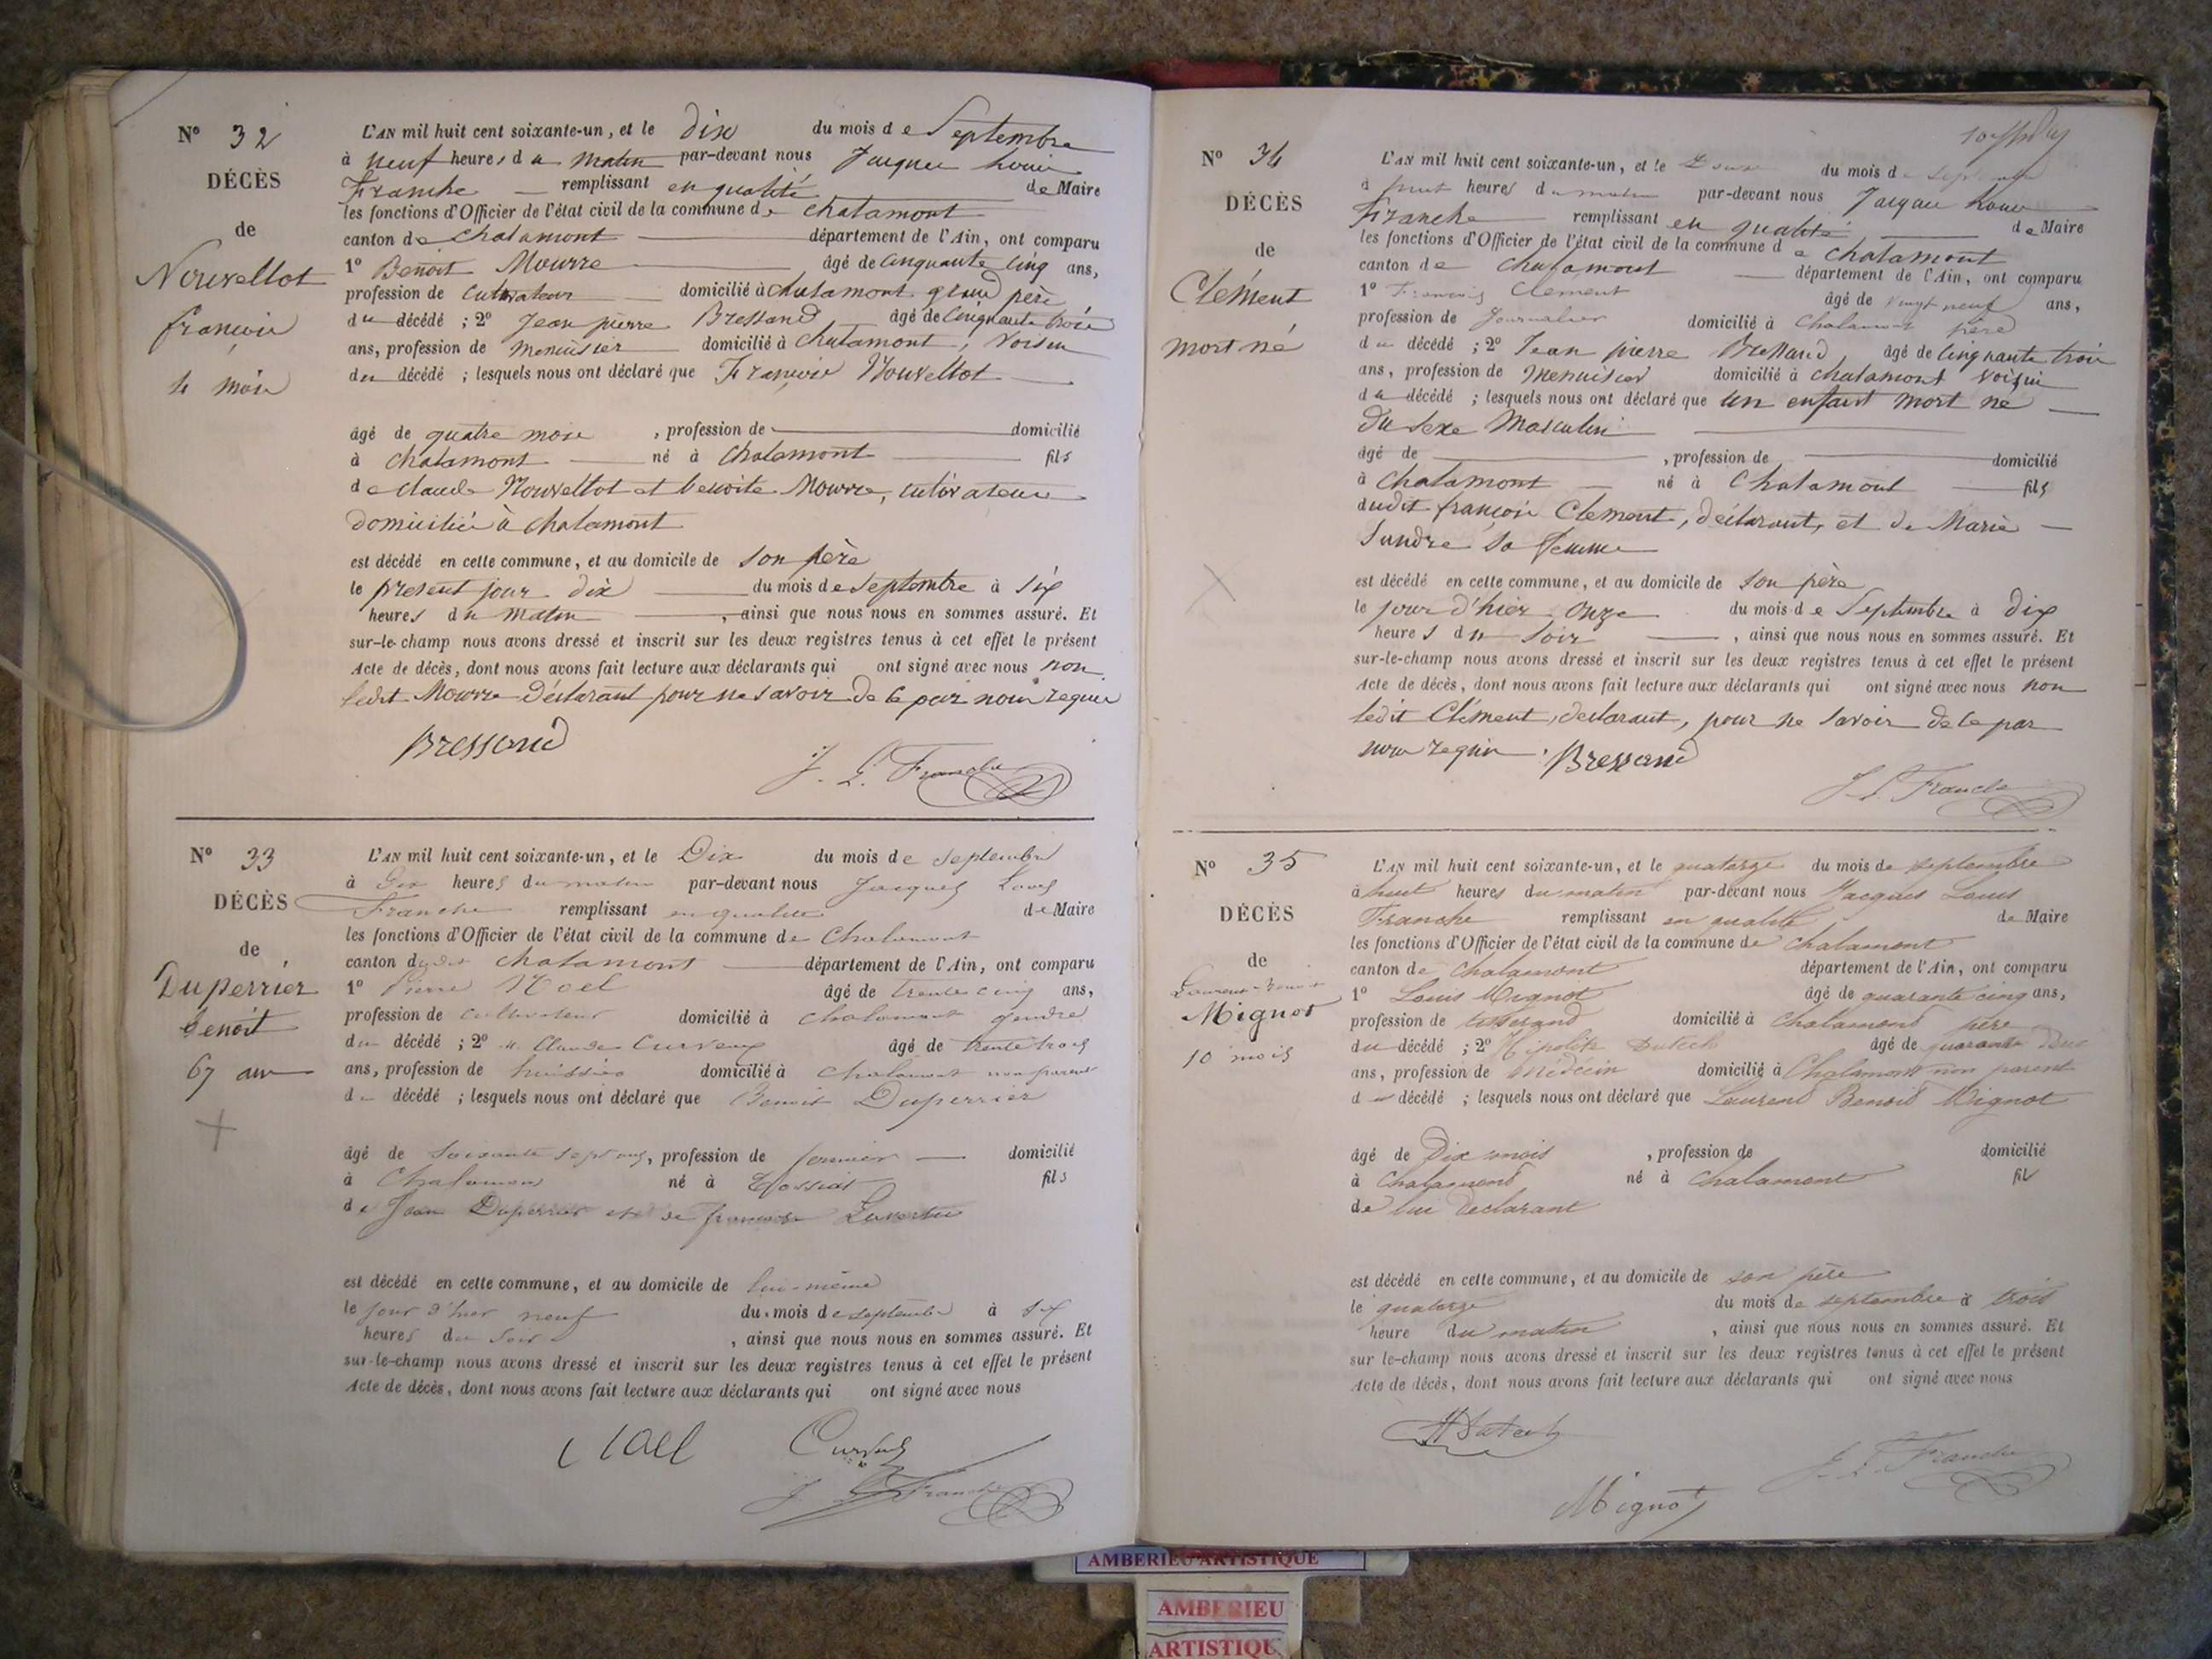 N° 32
DÉCÈS
de
Nouvellot
françois
4 mois
L'AN mil huit cent soixante-un, et le dix du mois de Septembre
à neuf heures du matin par-devant nous Jacques Louis
Franche remplissant en qualité de Maire
les fonctions d'Officier de l'état civil de la commune de chalamont
canton de chalamont département de l'Ain, ont comparu
1° Benoit Mourre âgé de cinquante cinq ans,
profession de cultivateur domicilié à chalamont grand père
du décédé ; 2° Jean pierre Bressand âgé de cinquante trois
ans, profession de menuisier domicilié à chalamont, voisin
du décédé ; lesquels nous ont déclaré que François Nouvellot
âgé de quatre mois , profession de domicilié
à chalamont né à chalamont fils
de claude Nouvellot et benoite Mourre, cultivateurs
domiciliés à chalamont
est décédé en cette commune, et au domicile de son père
le présent jour dix du mois de septembre à six
heures du matin , ainsi que nous nous en sommes assuré. Et
sur-le-champ nous avons dressé et inscrit sur les deux registres tenus à cet effet le présent
Acte de décès, dont nous avons fait lecture aux déclarants qui ont signé avec nous non
ledit Mourre déclarant pour ne savoir de ce par nous requis
Bressand
J. L. Franche
N° 33
DÉCÈS
de
Duperrier
benoit
67 ans
L'AN mil huit cent soixante-un, et le Dix du mois de septembre
à dix heures du matin par-devant nous Jacques Louis
Franche remplissant en qualité de Maire
les fonctions d'Officier de l'état civil de la commune de Chalamont
canton dudit chalamont département de l'Ain, ont comparu
1° Pierre Noel âgé de trente cinq ans,
profession de cultivateur domicilié à chalamont gendre
du décédé ; 2° Claude âgé de trente trois
ans, profession de huissier domicilié à Chalamont non parent
du décédé ; lesquels nous ont déclaré que Benoit Duperrier
âgé de soixante sept ans, profession de fermier domicilié
à Chalamont né à Tossiat fils
de Jean Duperrier et de françoise
est décédé en cette commune, et au domicile de lui-même
le jour d'hier neuf du mois de septembre à six
heures du soir , ainsi que nous nous en sommes assuré. Et
sur-le-champ nous avons dressé et inscrit sur les deux registres tenus à cet effet le présent
Acte de décès, dont nous avons fait lecture aux déclarants qui ont signé avec nous
Noel
J. L. Franche
N° 34
DÉCÈS
de
Clément
mort né
L'AN mil huit cent soixante-un, et le Douze du mois de septembre
à huit heures du matin par-devant nous Jacques Louis
Franche remplissant en qualité de Maire
les fonctions d'Officier de l'état civil de la commune de chalamont
canton de chalamont département de l'Ain, ont comparu
1° François Clement âgé de vingt neuf ans,
profession de Journalier domicilié à Chalamont père
du décédé ; 2° Jean pierre Bressand, âgé de cinquante trois
ans, profession de menuisier domicilié à chalamont voisin
du décédé ; lesquels nous ont déclaré que un enfant mort né
du sexe Masculin
âgé de , profession de domicilié
à Chalamont né à Chalamont fils
dudit françois Clement, déclarant, et de Marie
sa femme
est décédé en cette commune, et au domicile de son père
le jour d'hier onze du mois de Septembre à dix
heures du soir , ainsi que nous nous en sommes assuré. Et
sur-le-champ nous avons dressé et inscrit sur les deux registres tenus à cet effet le présent
Acte de décès, dont nous avons fait lecture aux déclarants qui ont signé avec nous non
ledit Clément, declarant, pour ne savoir de ce par
nous requis. Bressand
J. L. Franche
N° 35
DÉCÈS
de
Laurent-Benoit
Mignot
10 mois
L'AN mil huit cent soixante-un, et le quatorze du mois de septembre
à huit heures du matin par-devant nous Jacques Louis
Franche remplissant en qualité de Maire
les fonctions d'Officier de l'état civil de la commune de chalamont
canton de chalamont département de l'Ain, ont comparu
1° Louis Mignot âgé de quarante cinq ans,
profession de tisserand domicilié à Chalamont père
du décédé ; 2° Hipolite Dutech âgé de quarante Deux
ans, profession de médecin domicilié à Chalamont non parent
du décédé ; lesquels nous ont déclaré que Laurent Benoit Mignot
âgé de Dix mois , profession de domicilié
à Chalamont né à chalamont fils
de lui declarant
est décédé en cette commune, et au domicile de son père
le quatorze du mois de septembre à trois
heure du matin , ainsi que nous nous en sommes assuré. Et
sur le-champ nous avons dressé et inscrit sur les deux registres tenus à cet effet le présent
Acte de décès, dont nous avons fait lecture aux déclarants qui ont signé avec nous
H Dutech
J. L. Franche
Mignot
AMBERIEU ARTISTIQUE
AMBERIEU
ARTISTIQUE